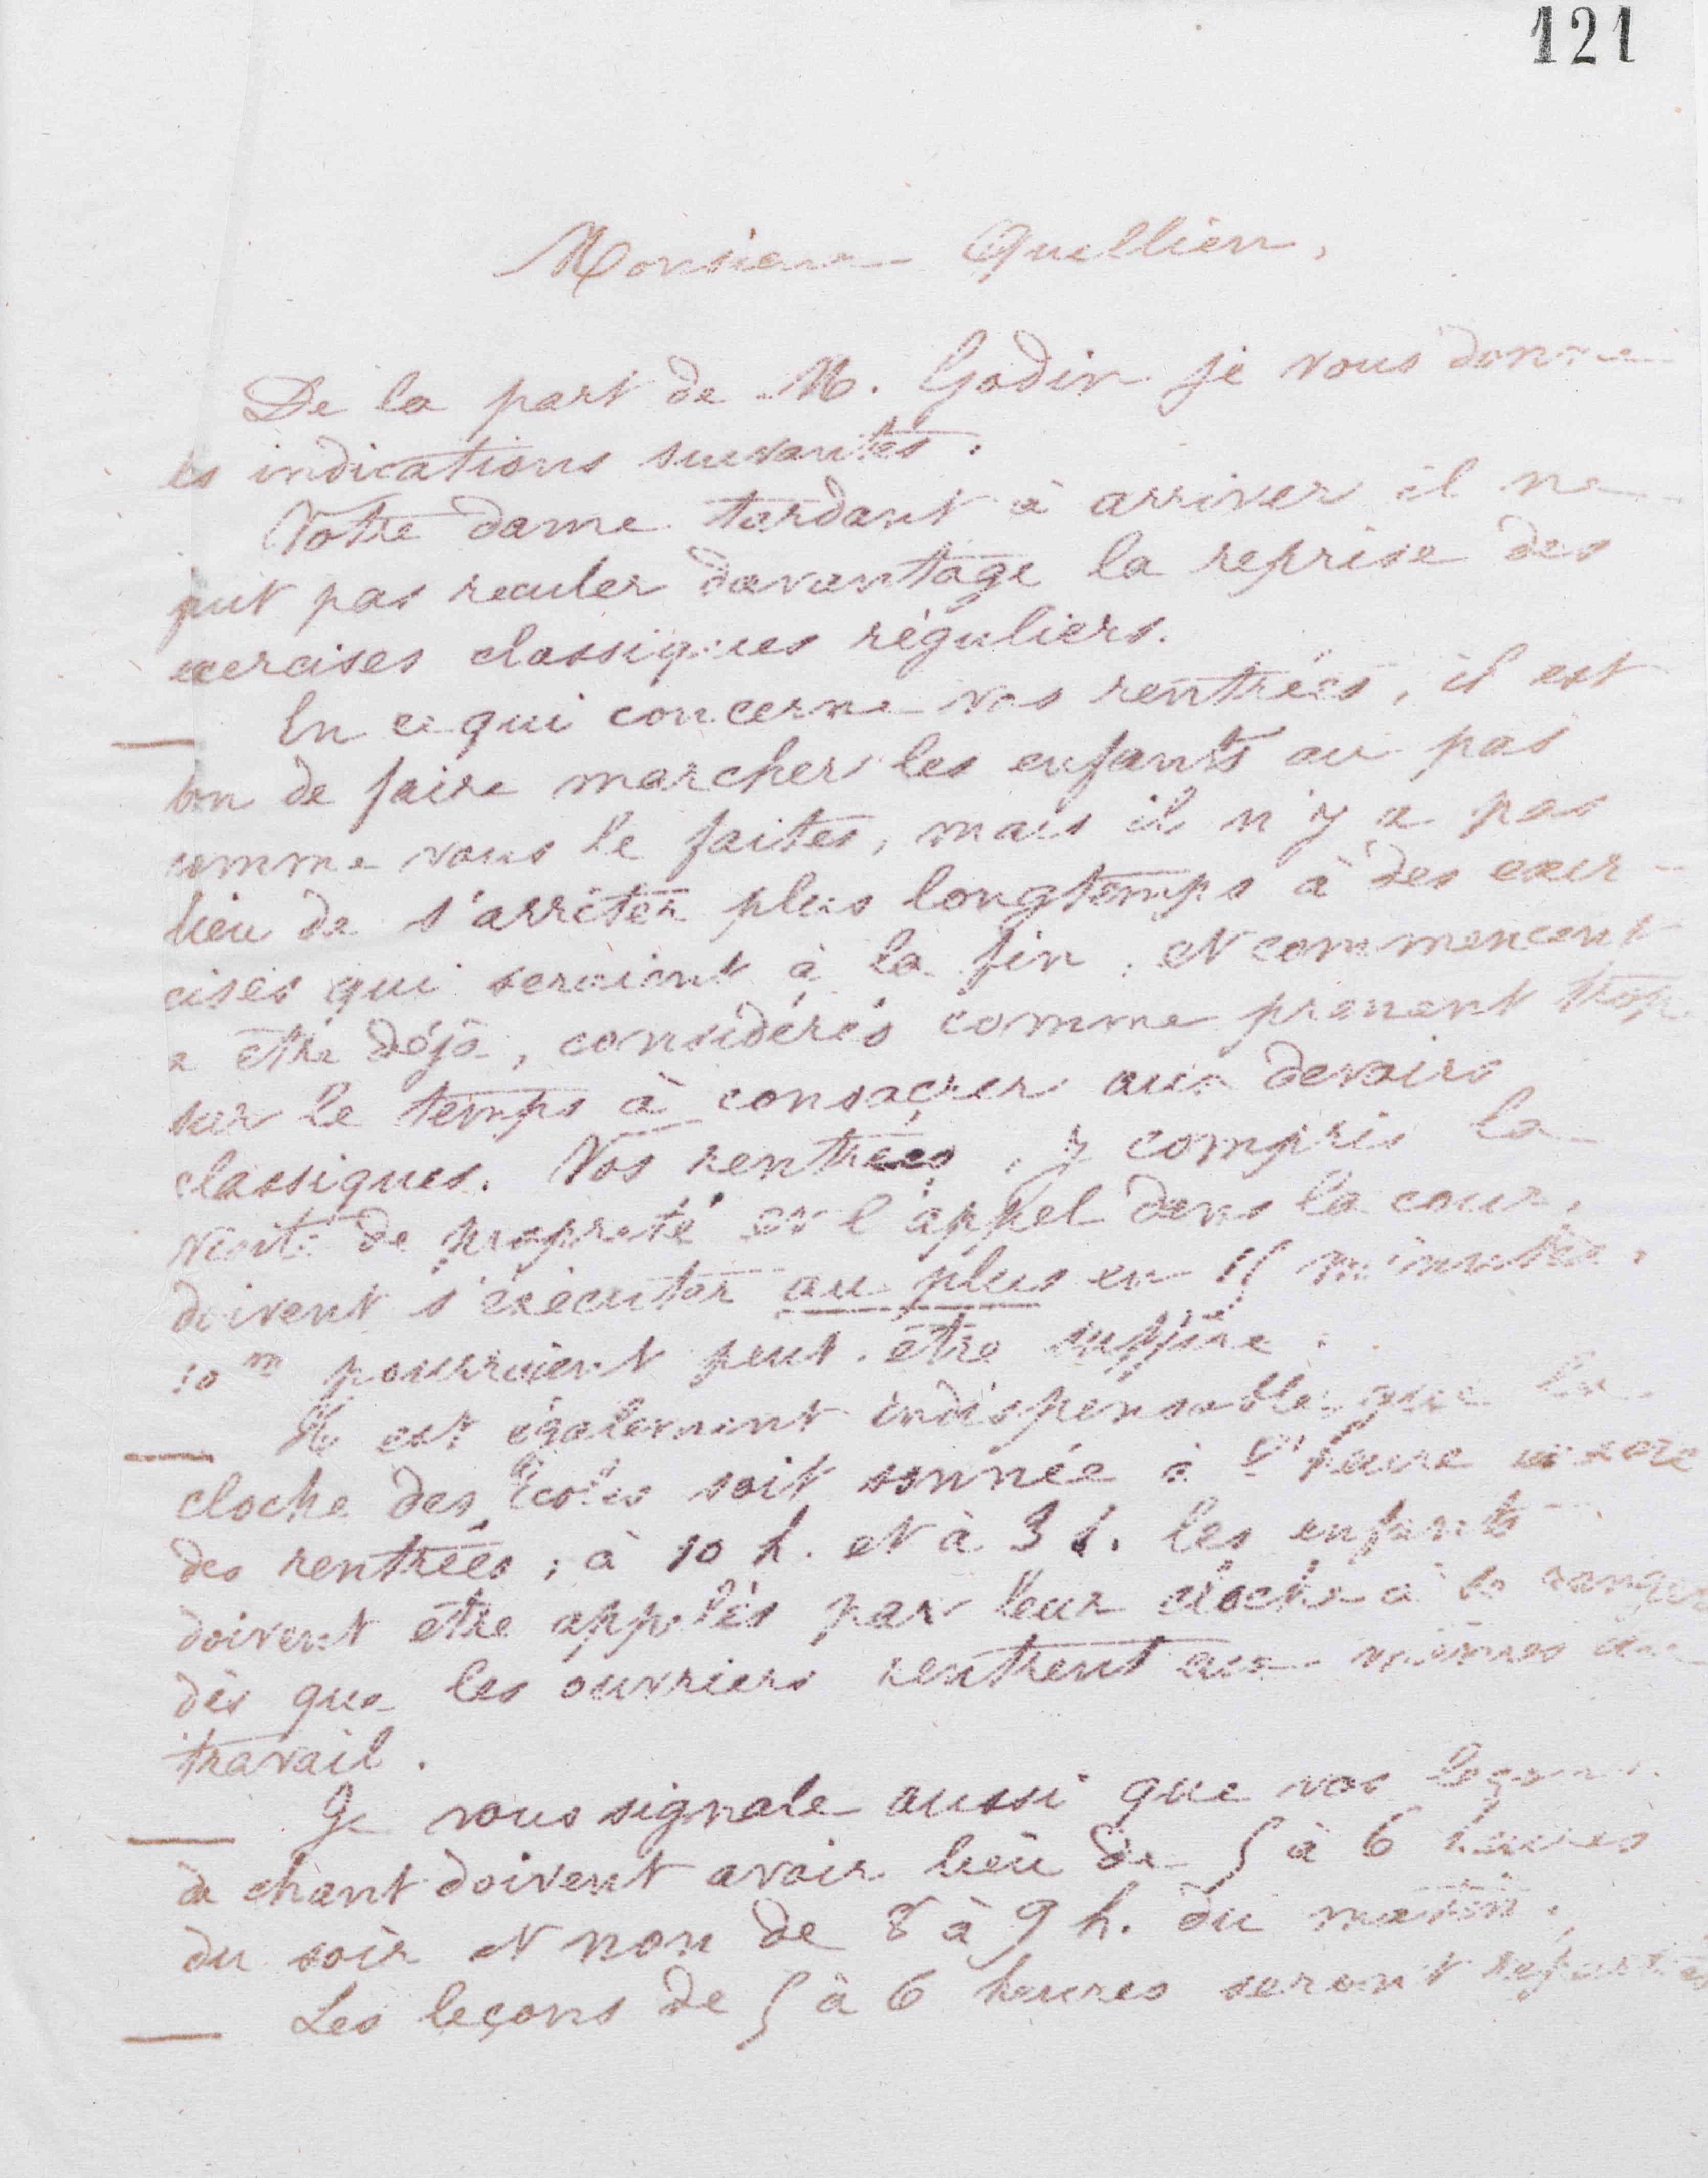 121
Monsieur Quellien,
De la part de M. Godin je vous donne
les indications suivantes.
Votre dame tardant à arriver il ne
faut pas reculer davantage la reprise des
exercises classiques réguliers.
— En ce qui concerne vos rentrées, il est
bon de faire marcher les enfants au pas
comme vous le faites, mais il n'y a pas
lieu de s'arrêter plus longtemps à des exer-
cises qui seraient à la fin, et commencent
a être déjà, considérés comme prenent trop
sur le temps à consacrer aux devoirs
classiques. Vos rentrées, y compris la
visite de propreté et l'appel dans la cour,
doivent s'exécuter au plus en 15 minutes.
10 m pourraient peut-être suffire.
— Il est également indispensable que la
cloche des écoles soit sonnée à l'heure
des rentrées; à 10 h. et à 3 h. les enfants
doivent être appelés par leur cloche à se ranger
dès que les ouvriers rentrent eux-mêmes au
travail.
— Je vous signale aussi que vos leçons
de chant doivent avoir lieu de 5 à 6 heures
du soir et non de 8 à 9 h. du matin.
— Les leçons de 5 à 6 heures seront réparties